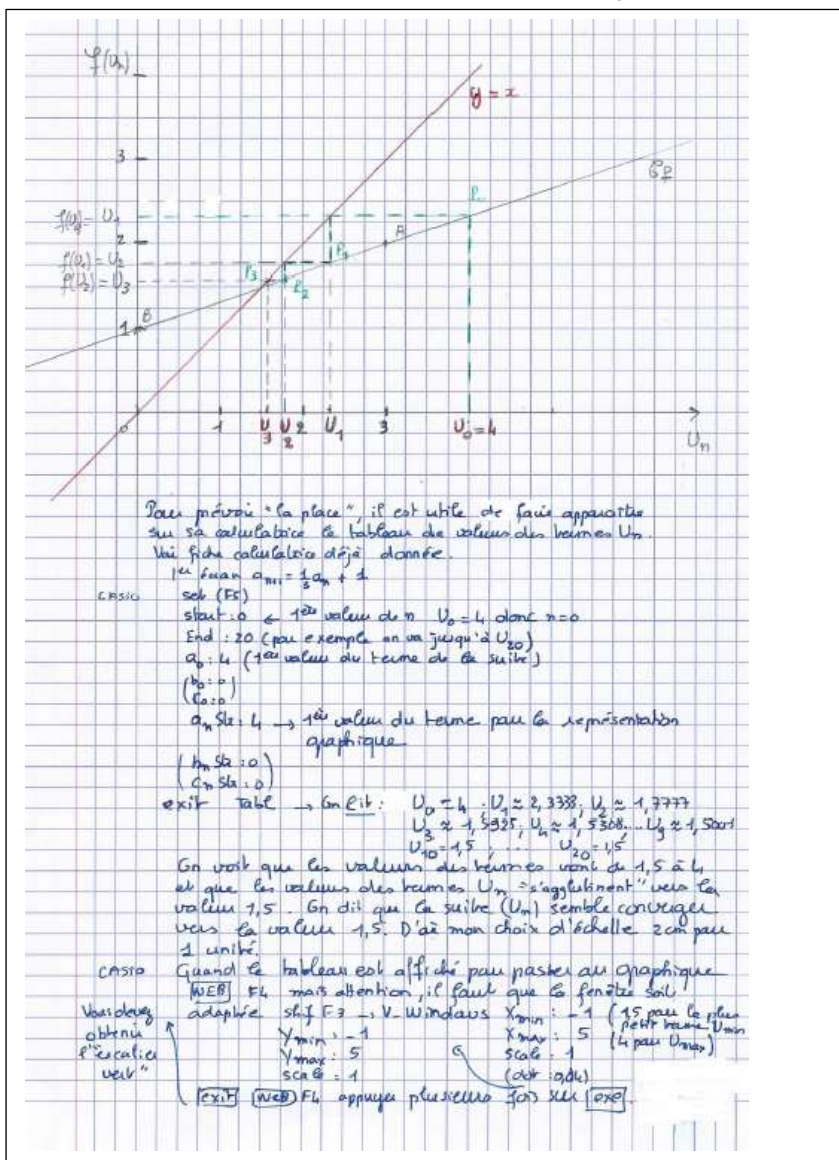 f(Un)
y = x
3
Cf
P₀
f(U₀) = U₁
2
A
f(U₁) = U₂
P₁
f(U₂) = U₃
P₃
P₂
1
B
0
1
U₃
U₂
2
U₁
3
U₀ = 4
Un
Pour prévoir "la place", il est utile de faire apparaître
sur sa calculatrice le tableau de valeurs des termes Un.
Voir fiche calculatrice déjà donnée.
1er écran aₙ₊₁ = 1/3 aₙ + 1
CASIO set (F5)
start : 0 ← 1ère valeur de n U₀ = 4 donc n = 0
End : 20 (par exemple on va jusqu'à U₂₀)
a₀ : 4 (1ère valeur du terme de la suite)
(b₀ : 0
c₀ : 0)
aₙ Str : 4 → 1ère valeur du terme pour la représentation
graphique
(bₙ Str : 0
cₙ Str : 0)
exit Table → On lit : U₀ = 4 ; U₁ ≈ 2,3333 ; U₂ ≈ 1,7777
U₃ ≈ 1,5925 ; U₄ ≈ 1,5308 ... U₉ ≈ 1,5001
U₁₀ = 1,5 ; ... U₂₀ = 1,5
On voit que les valeurs des termes vont de 1,5 à 4
et que les valeurs des termes Un "s'agglutinent" vers la
valeur 1,5. On dit que la suite (Un) semble converger
vers la valeur 1,5. D'où mon choix d'échelle 2cm pour
1 unité.
CASIO Quand le tableau est affiché pour passer au graphique
WEB F4 mais attention, il faut que la fenêtre soit
adaptée shif F3 → V-Windows Xmin : -1 (1,5 pour le plus
petit terme Umin
Ymin : -1 Xmax : 5 (4 pour Umax)
Ymax : 5 scale : 1
scale : 1 (dot : 0,04)
Vous devez
obtenir
l'"escalier
vert"
exit WEB F4 appuyer plusieurs fois sur exe.